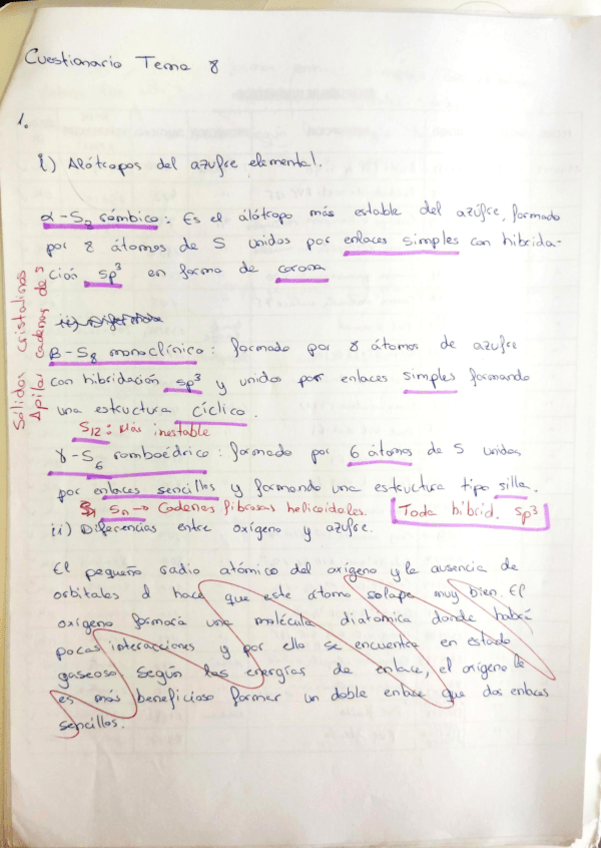 Cuestionario Tema 8
1.
i) Alótropos del azufre elemental.
α-S8 rómbico: Es el alótropo más estable del azufre, formado
por 8 átomos de S unidos por enlaces simples con hibrida-
ción sp3 en forma de corona
Sólidos cristalinos
Apilar cadenas de S
ii) Diferencia
β-S8 monoclínico: formado por 8 átomos de azufre
con hibridación sp3 y unidos por enlaces simples formando
una estructura cíclico.
S12: Más inestable
γ-S6 romboédrico: formado por 6 átomos de S unidos
por enlaces sencillos y formando una estructura tipo silla.
Sn → Cadenas fibrosas helicoidales. Toda hibrid. sp3
ii) Diferencias entre oxígeno y azufre.
El pequeño radio atómico del oxígeno y la ausencia de
orbitales d hace que este átomo solape muy bien. El
oxígeno formaría una molécula diatómica donde habrá
pocas interacciones y por ello se encuentra en estado
gaseoso. Según las energías de enlace, el oxígeno le
es más beneficioso formar un doble enlace que dos enlaces
sencillos.